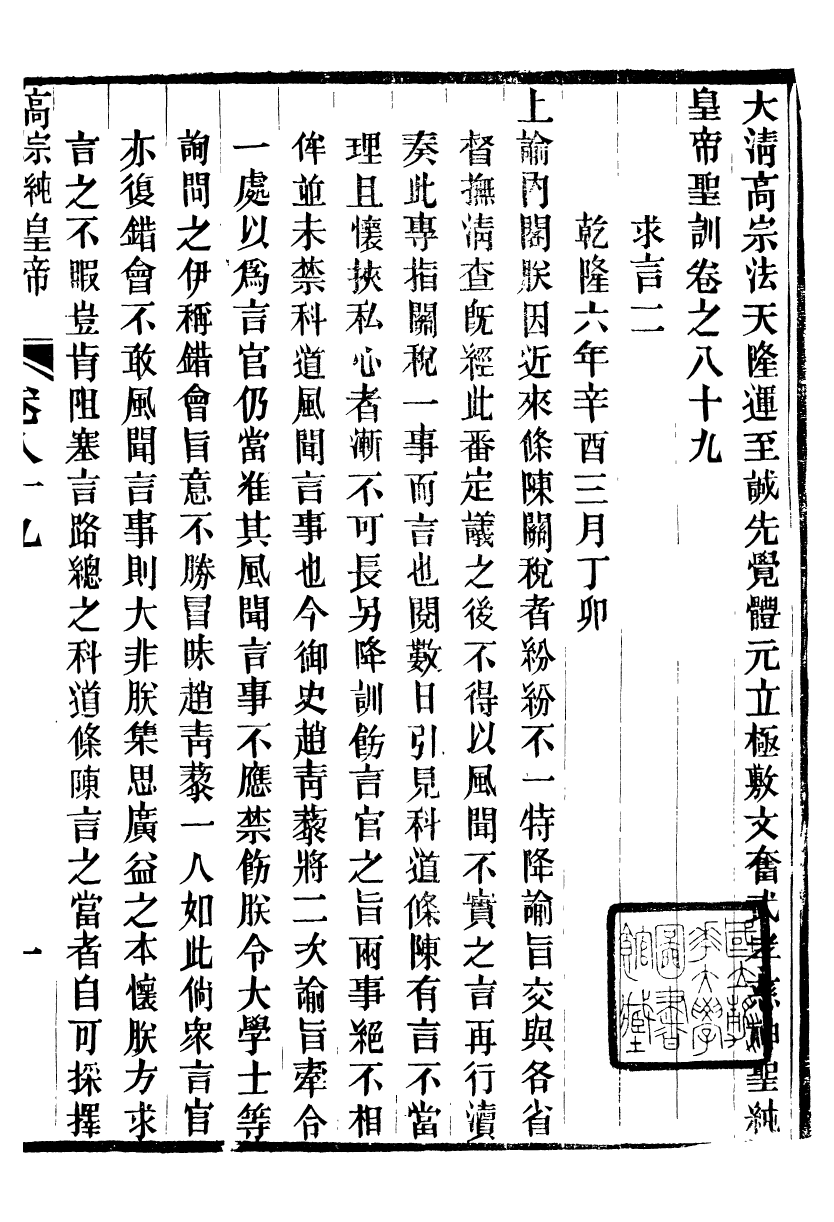 大淸高宗法天隆運至誠先覺體元立極敷文奮武孝慈神聖純
皇帝聖訓卷之八十九
求言二
乾隆六年辛酉三月丁卯
上諭內閣朕因近來條陳關稅者紛紛不一特降諭旨交與各省
督撫淸查旣經此番定議之後不得以風聞不實之言再行瀆
奏此專指關稅一事而言也閱數日引見科道條陳有言不當
理且懷挾私心者漸不可長另降訓飭言官之旨兩事絕不相
侔並未禁科道風聞言事也今御史趙靑藜將二次諭旨牽合
一處以爲言官仍當准其風聞言事不應禁飭朕令大學士等
詢問之伊稱錯會旨意不勝冒昧趙靑藜一人如此倘衆言官
亦復錯會不敢風聞言事則大非朕集思廣益之本懷朕方求
言之不暇豈肯阻塞言路總之科道條陳言之當者自可採擇
高宗純皇帝
卷八十九
一
國立清
華大學
圖書
館藏